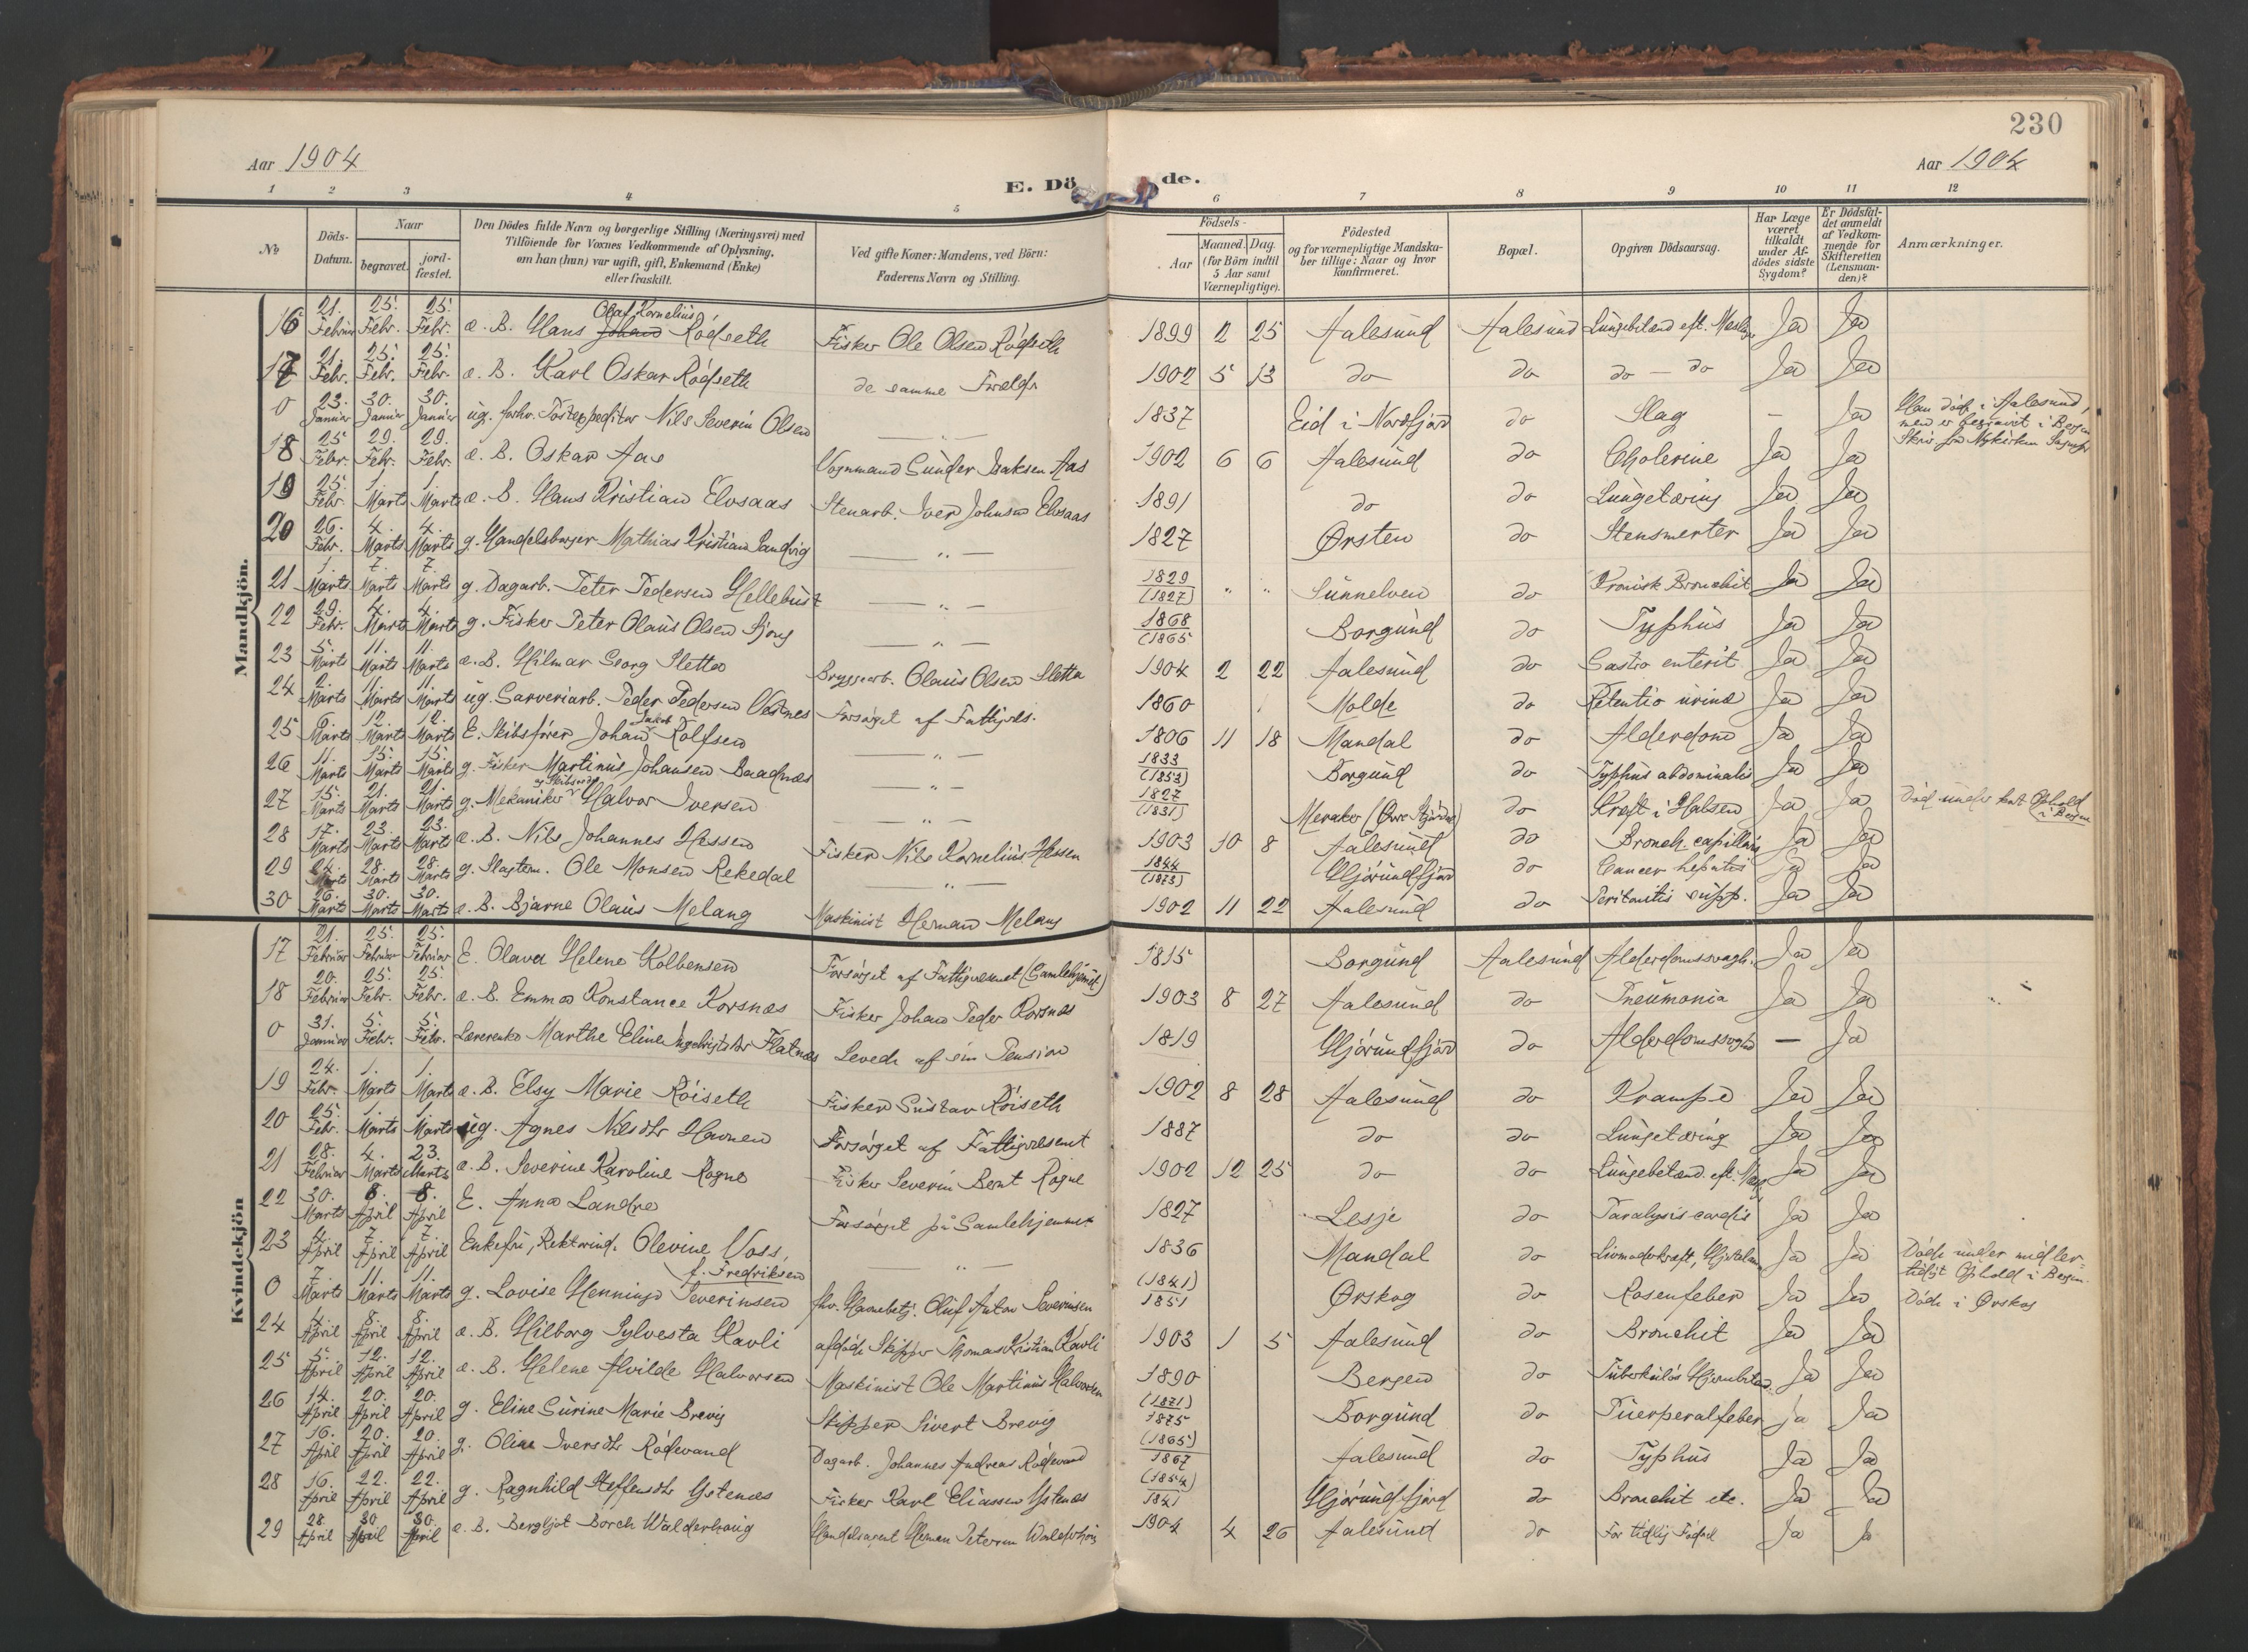 230
Aar 1904
Aar 1904
E. Döde.
1 2 3 4 5 6 7 8 9 10 11 12
No
Döds-Datum.
Naar
begravet.
jord-fæstet.
Den Dödes fulde Navn og borgerlige Stilling (Næringsvei) med
Tilföiende for Voxnes Vedkommende af Oplysning,
om han (hun) var ugift, gift, Enkemand (Enke)
eller fraskilt.
Ved gifte Koner: Mandens, ved Börn:
Faderens Navn og Stilling.
Födsels-
Aar
Maaned. Dag.
(for Börn indtil
5 Aar samt
Værnepligtige).
Födested
og for værnepligtige Mandskaber tillige: Naar og hvor
konfirmeret.
Bopæl.
Opgiven Dödsaarsag.
Har Læge været tilkaldt under Afdödes sidste Sygdom?
Er Dödsfaldet anmeldt af Vedkommende for Skifteretten (Lensmanden)?
Anmærkninger.
Mandkjön.
16 21. Februar 25. Febr. 25. Febr. æ. B. Hans Johan Olaf Kornelius Rödseth Fisker Ole Olsen Rödseth 1899 2 25 Aalesund Aalesund Lungebetænd eft. Ja Ja
17 21. Febr. 25. Febr. 25. Febr. æ. B. Karl Oskar Rödseth de samme 1902 5 13 do do do — do Ja Ja
0 23. Januar 30. Januar 30. Januar ug. forhv. Nils Severin Olsen — „ — 1837 Eid i Nordfjord do Slag — Ja Han döde i Aalesund,
men er begravet i Bergen
18 25 Febr. 29. Febr. 29. Febr. æ. B. Oskar Aas Vognmand Sunder Isaksen Aas 1902 6 6 Aalesund do Cholerine Ja Ja
19 25. Febr. 1. Marts 1. Marts æ. B. Hans Kristian Elvsaas Stenarb. Iver Johnsen Elvsaas 1891 do do Lungetæring Ja Ja
20 26. Febr. 4. Marts 4. Marts g. Handelsborger Mathias Kristian Sandvig — „ — 1827 Ørsten do Stensmerter Ja Ja
21 1. Marts 7. Marts 7. Marts g. Dagarb. Peter Pedersen Hellebust — „ — 1829 (1827) „ „ Sunnelven do Kronisk Bronchit Ja Ja
22 29. Febr. 4. Marts 4. Marts g. Fisker Peter Olaus Olsen — „ — 1868 (1865 Borgund do Typhus Ja Ja
23 5. Marts 11. Marts 11. Marts æ. B. Hilmar Georg Sletta Bryggearb. Olaus Olsen Sletta 1904 2 22 Aalesund do Gastro enterit Ja Ja
24 2. Marts 11. Marts 11. Marts ug. Garveriarb. Peder Pedersen Vestnes Forsørget af Fattigvæs. 1860 Molde do Retentio urinæ Ja Ja
25 6. Marts 12. Marts 12. Marts E. Skibsfører Johan Jacob Rolfsen — „ — 1806 11 18 Mandal do Alderdom Ja Ja
26 11. Marts 15. Marts 15. Marts g. Fisker Martinus Johansen Baadnæs — „ — 1833 (1853) Borgund do Typhus abdominalis Ja Ja
27 15. Marts 21. Marts 21. Marts g. Mekaniker Halvor Iversen — „ — 1827 (1831) Meraker do Kræft i Halsen Ja Ja Död under kort Ophold
i Bergen
28 17. Marts 23. Marts 23. Marts æ. B. Nils Johannes Hessen Fisker Nils Kornelius Hessen 1903 10 8 Aalesund do Bronch. capillaris Ja Ja
29 24. Marts 28. Marts 28. Marts g. Ole Monsen Rekedal — „ — 1844 (1873) Hjörundfjord do Cancer hepatis Ja Ja
30 26. Marts 30. Marts 30. Marts æ. B. Bjarne Olaus Melang Maskinist Herman Melang 1902 11 22 Aalesund do supp. Ja Ja
Kvindekjön
17 21. Februar 25. Februar 25. Februar E. Olava Helene Kolbensen Forsørget af Fattigvæsenet (Gamlehjemmet) 1815 Borgund Aalesund Alderdomssvagh. Ja Ja
18 20. Februar 25. Febr. 25. Febr. æ. B. Emma Konstance Korsnæs Fisker Johan Peder Korsnæs 1903 8 27 Aalesund do Pneumonia Ja Ja
0 31. Januar 5. Febr. 5. Febr. Lærerenke Marthe Eline Ingebrigtsdtr Flatnæs Levede af sin Pension 1819 Hjörundfjord do Alderdomssvaghed — Ja
19 24. Febr. 1. Marts 1. Marts æ. B. Elsy Marie Röiseth Fisker Gustav Röiseth 1902 8 28 Aalesund do Krampe Ja Ja
20 25. Febr. 1. Marts 1. Marts ug. Agnes Nilsdtr Havnen Forsørget af Fattigvæsenet 1887 do do Lungetæring Ja Ja
21 28. Februar 4. Marts 23. Marts æ. B. Severine Karoline Rogne Fisker Severin Bernt Rogne 1902 12 25 do do Lungebetænd. eft. Ja Ja
22 30. Marts 8. April 8. April E. Anna Landre Forsørget på Gamlehjemmet 1827 Lesje do Paralysis cordis Ja Ja
23 4. April 7. April 7. April Enkefru, Rektorind. Olevine Voss,
f. Fredriksen — „ — 1836 Mandal do Livmoderkræft, Ja Ja Döde under midler-
tidigt Ophold i Bergen.
0 7. Marts 11. Marts 11. Marts g. Lovise Henninga Severinsen fhv. Havnebetj. Oluf Anton Severinsen (1841) 1851 Ørskog do Rosenfeber Ja Ja Döde i Ørskog
24 4. April 8. April 8. April æ. B. Hilborg Sylvesta Kavli afdöde Skipper Thomas Kristian Kavli 1903 1 5 Aalesund do Bronchit Ja Ja
25 5. April 12. April 12. April æ. B. Helene Alvilde Halvorsen Maskinist Ole Martinus Halvorsen 1890 Bergen do Tuberkuløs Ja Ja
26 14. April 20. April 20. April g. Eline Gurine Marie Brevig Skipper Sivert Brevig (1871) 1875 Borgund do Puerperalfeber ja Ja
27 16. April 20. April 20. April g. Oline Iversdtr Rödevand Dagarb. Johannes Andreas Rödevand (1865) 1867 Aalesund do Typhus Ja Ja
28 16. April 22. April 22. April g. Ragnhild Steffensdtr Ystenæs Fisker Karl Eliassen Ystenæs (1854) 1841 Hjörundfjord do Bronchit etc. Ja Ja
29 28. April 30 April 30. April æ. B. Bergljot Borch Walderhaug Handelsagent Herman Peterson Walderhaug 1904 4 26 Aalesund do For tidlig Födsel Ja Ja